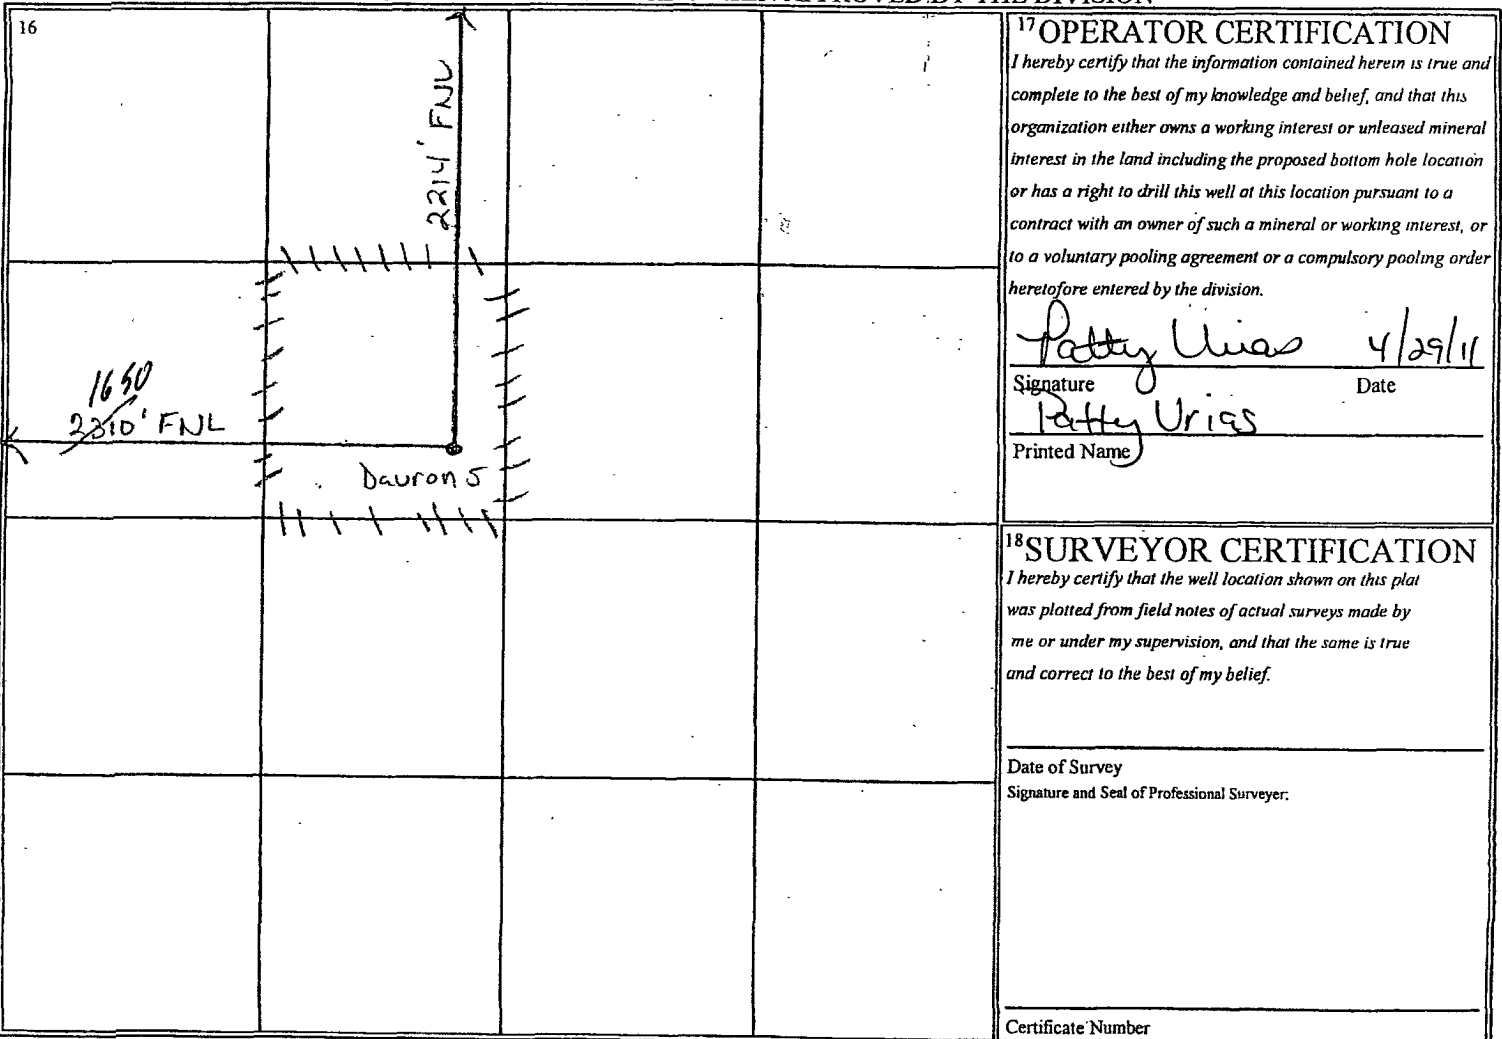 16
2214' FNL
1650
2310' FNL
Dauron 5
17 OPERATOR CERTIFICATION
I hereby certify that the information contained herein is true and
complete to the best of my knowledge and belief, and that this
organization either owns a working interest or unleased mineral
interest in the land including the proposed bottom hole location
or has a right to drill this well at this location pursuant to a
contract with an owner of such a mineral or working interest, or
to a voluntary pooling agreement or a compulsory pooling order
heretofore entered by the division.
Patty Urias 4/29/11
Signature Date
Patty Urias
Printed Name
18 SURVEYOR CERTIFICATION
I hereby certify that the well location shown on this plat
was plotted from field notes of actual surveys made by
me or under my supervision, and that the same is true
and correct to the best of my belief.
Date of Survey
Signature and Seal of Professional Surveyer:
Certificate Number